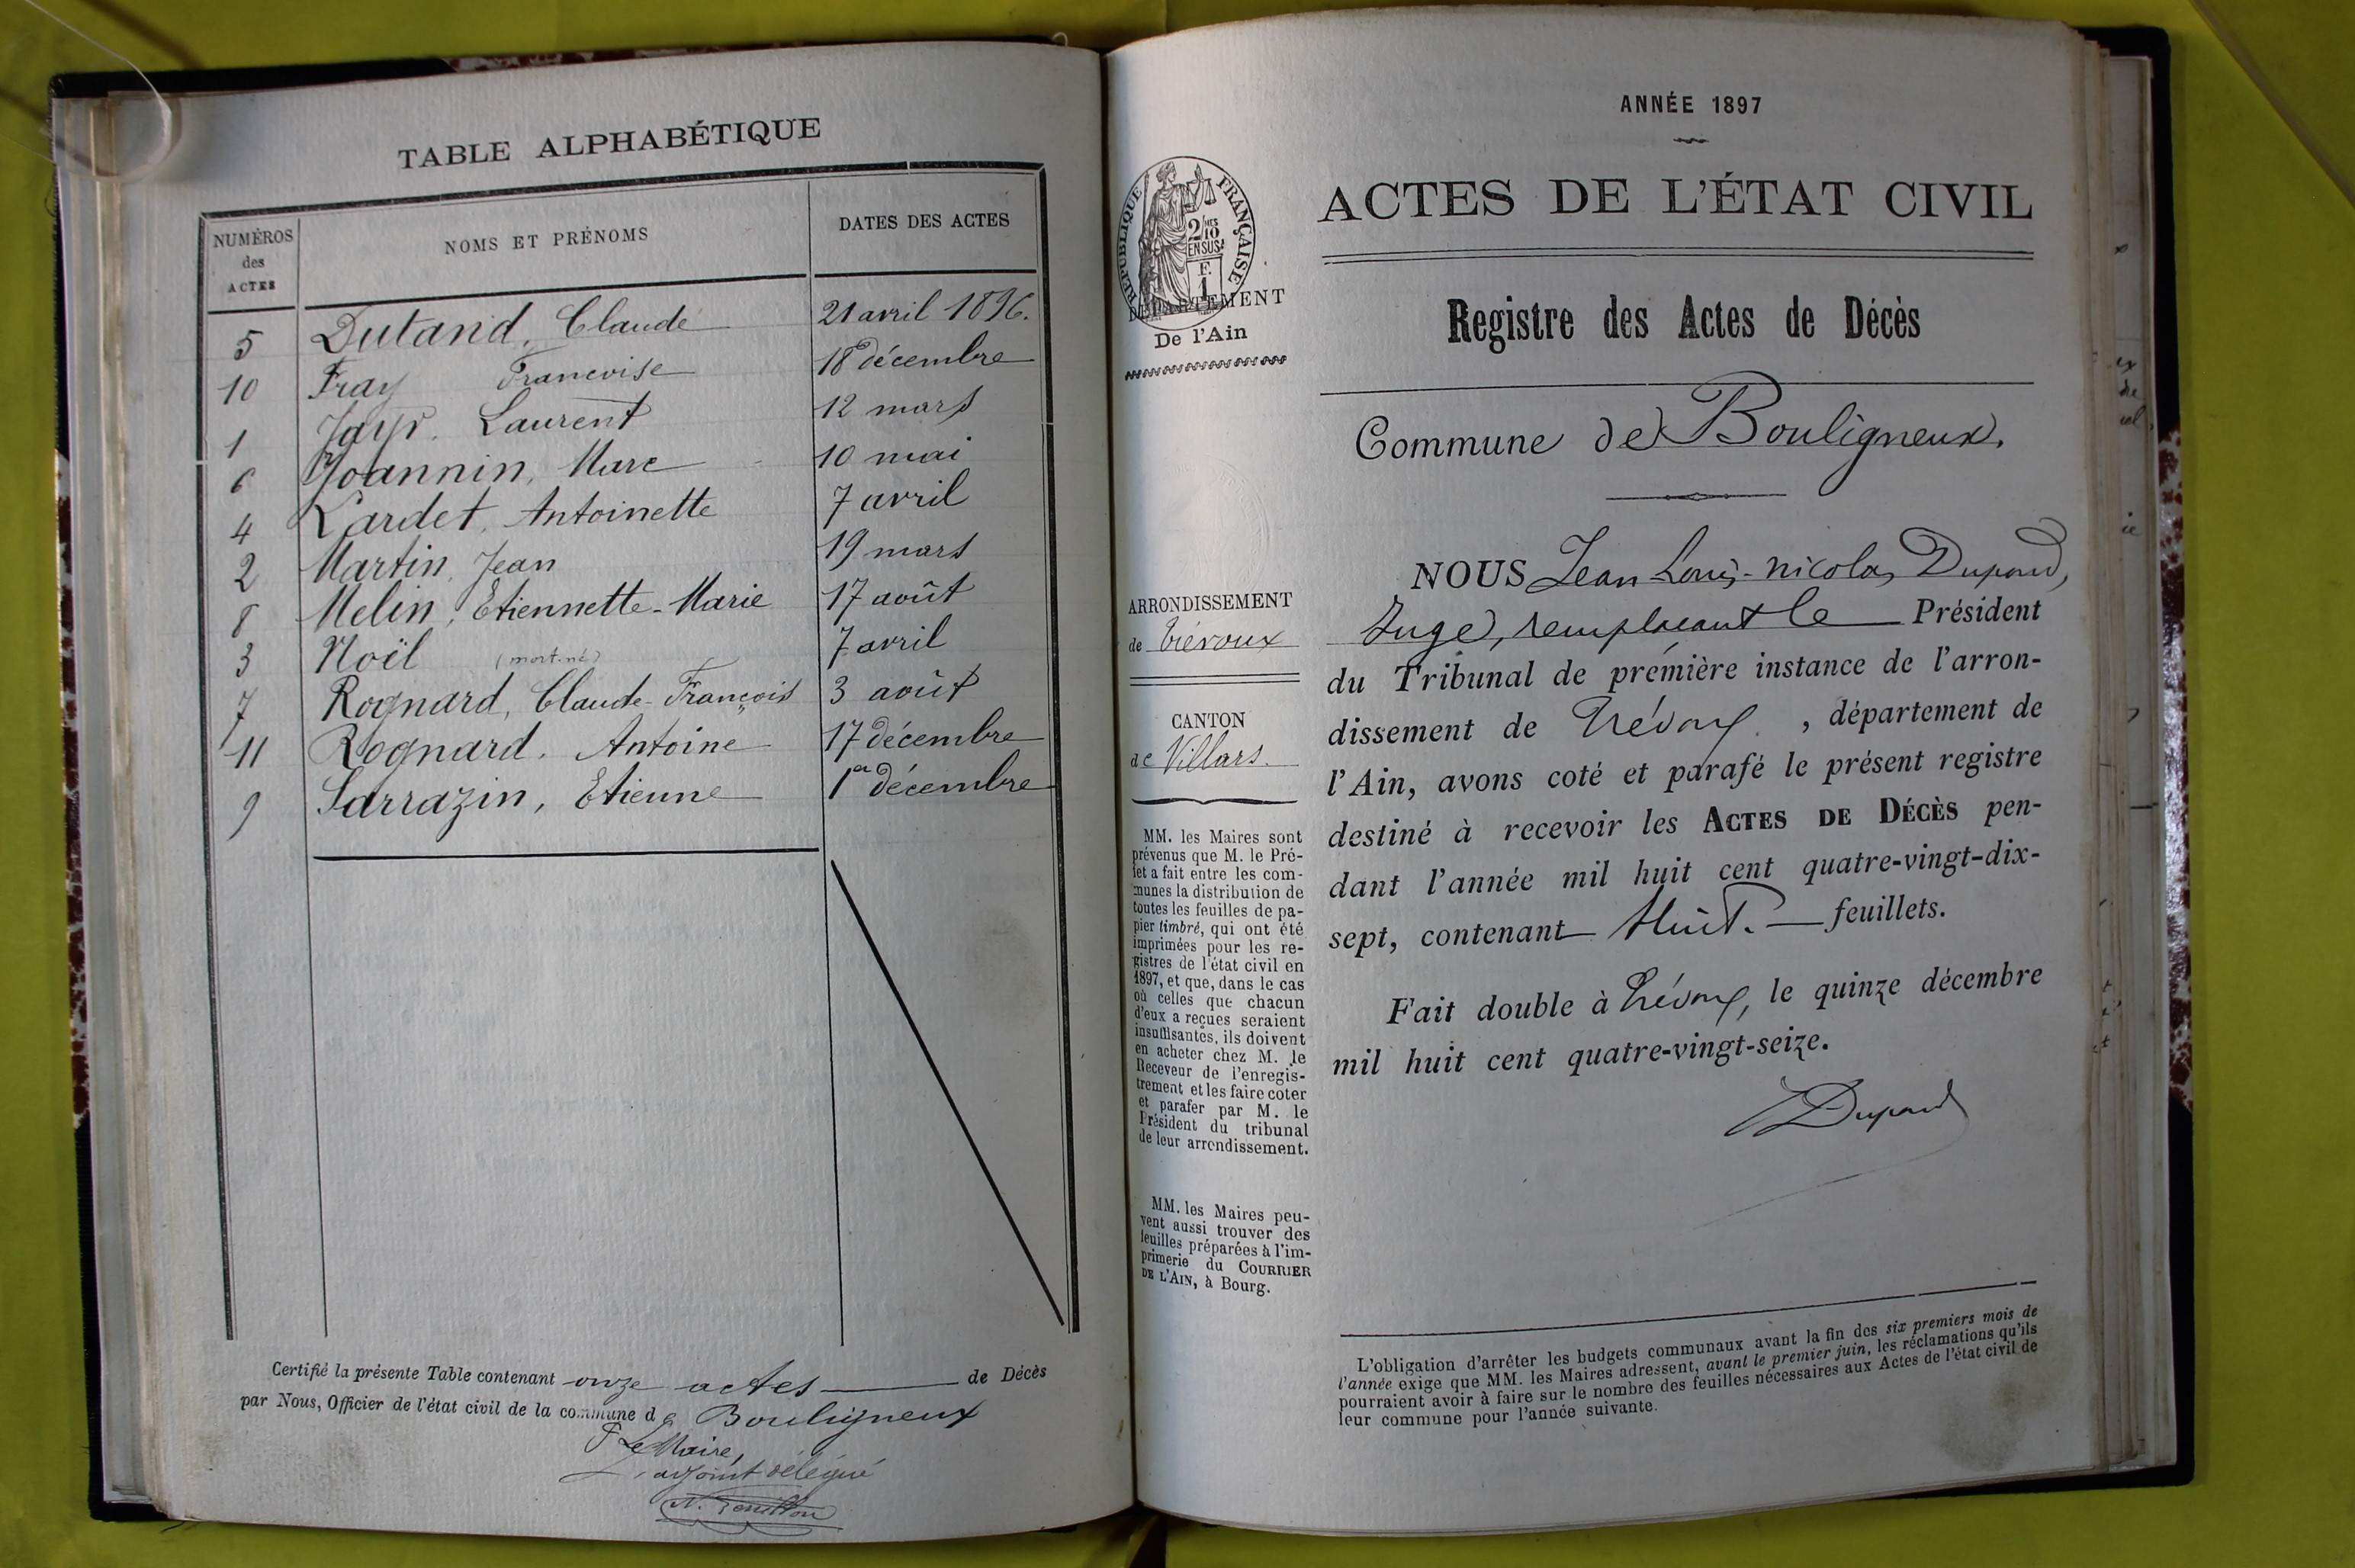 TABLE ALPHABÉTIQUE
NUMÉROS des ACTES NOMS ET PRÉNOMS DATES DES ACTES
5 Dutand, Claude 21 avril 1896.
10 Fray Francoise 18 décembre
1 Jayr. Laurent 12 mars
6 Joannin, Marc 10 mai
4 Lardet, Antoinette 7 avril
2 Martin, Jean 19 mars
8 Melin, Etiennette-Marie 17 août
3 Noël (mort-né) 7 avril
7 Rognard, Claude-François 3 août
11 Rognard, Antoine 17 décembre
9 Sarrazin, Etienne 1er décembre
Certifié la présente Table contenant onze actes de Décès
par Nous, Officier de l'état civil de la commune de Bouligneux
P Le Maire,
adjoint délégué
ANNÉE 1897
ACTES DE L'ÉTAT CIVIL
Registre des Actes de Décès
Commune de Bouligneux.
RÉPUBLIQUE FRANÇAISE
2/10 EN SUS
F. 1
DÉPARTEMENT
De l'Ain
ARRONDISSEMENT
de Trévoux
CANTON
de Villars.
MM. les Maires sont
prévenus que M. le Pré-
fet a fait entre les com-
munes la distribution de
toutes les feuilles de pa-
pier timbré, qui ont été
imprimées pour les re-
gistres de l'état civil en
1897, et que, dans le cas
où celles que chacun
d'eux a reçues seraient
insuffisantes, ils doivent
en acheter chez M. le
Receveur de l'enregis-
trement et les faire coter
et parafer par M. le
Président du tribunal
de leur arrondissement.
MM. les Maires peu-
vent aussi trouver des
feuilles préparées à l'im-
primerie du COURRIER
DE L'AIN, à Bourg.
NOUS Jean Louis-Nicolas Dupond,
Juge, remplaçant le Président
du Tribunal de première instance de l'arron-
dissement de Trévoux, département de
l'Ain, avons coté et parafé le présent registre
destiné à recevoir les ACTES DE DÉCÈS pen-
dant l'année mil huit cent quatre-vingt-dix-
sept, contenant Huit. feuillets.
Fait double à Trévoux, le quinze décembre
mil huit cent quatre-vingt-seize.
Dupond
L'obligation d'arrêter les budgets communaux avant la fin des six premiers mois de
l'année exige que MM. les Maires adressent, avant le premier juin, les réclamations qu'ils
pourraient avoir à faire sur le nombre des feuilles nécessaires aux Actes de l'état civil de
leur commune pour l'année suivante.